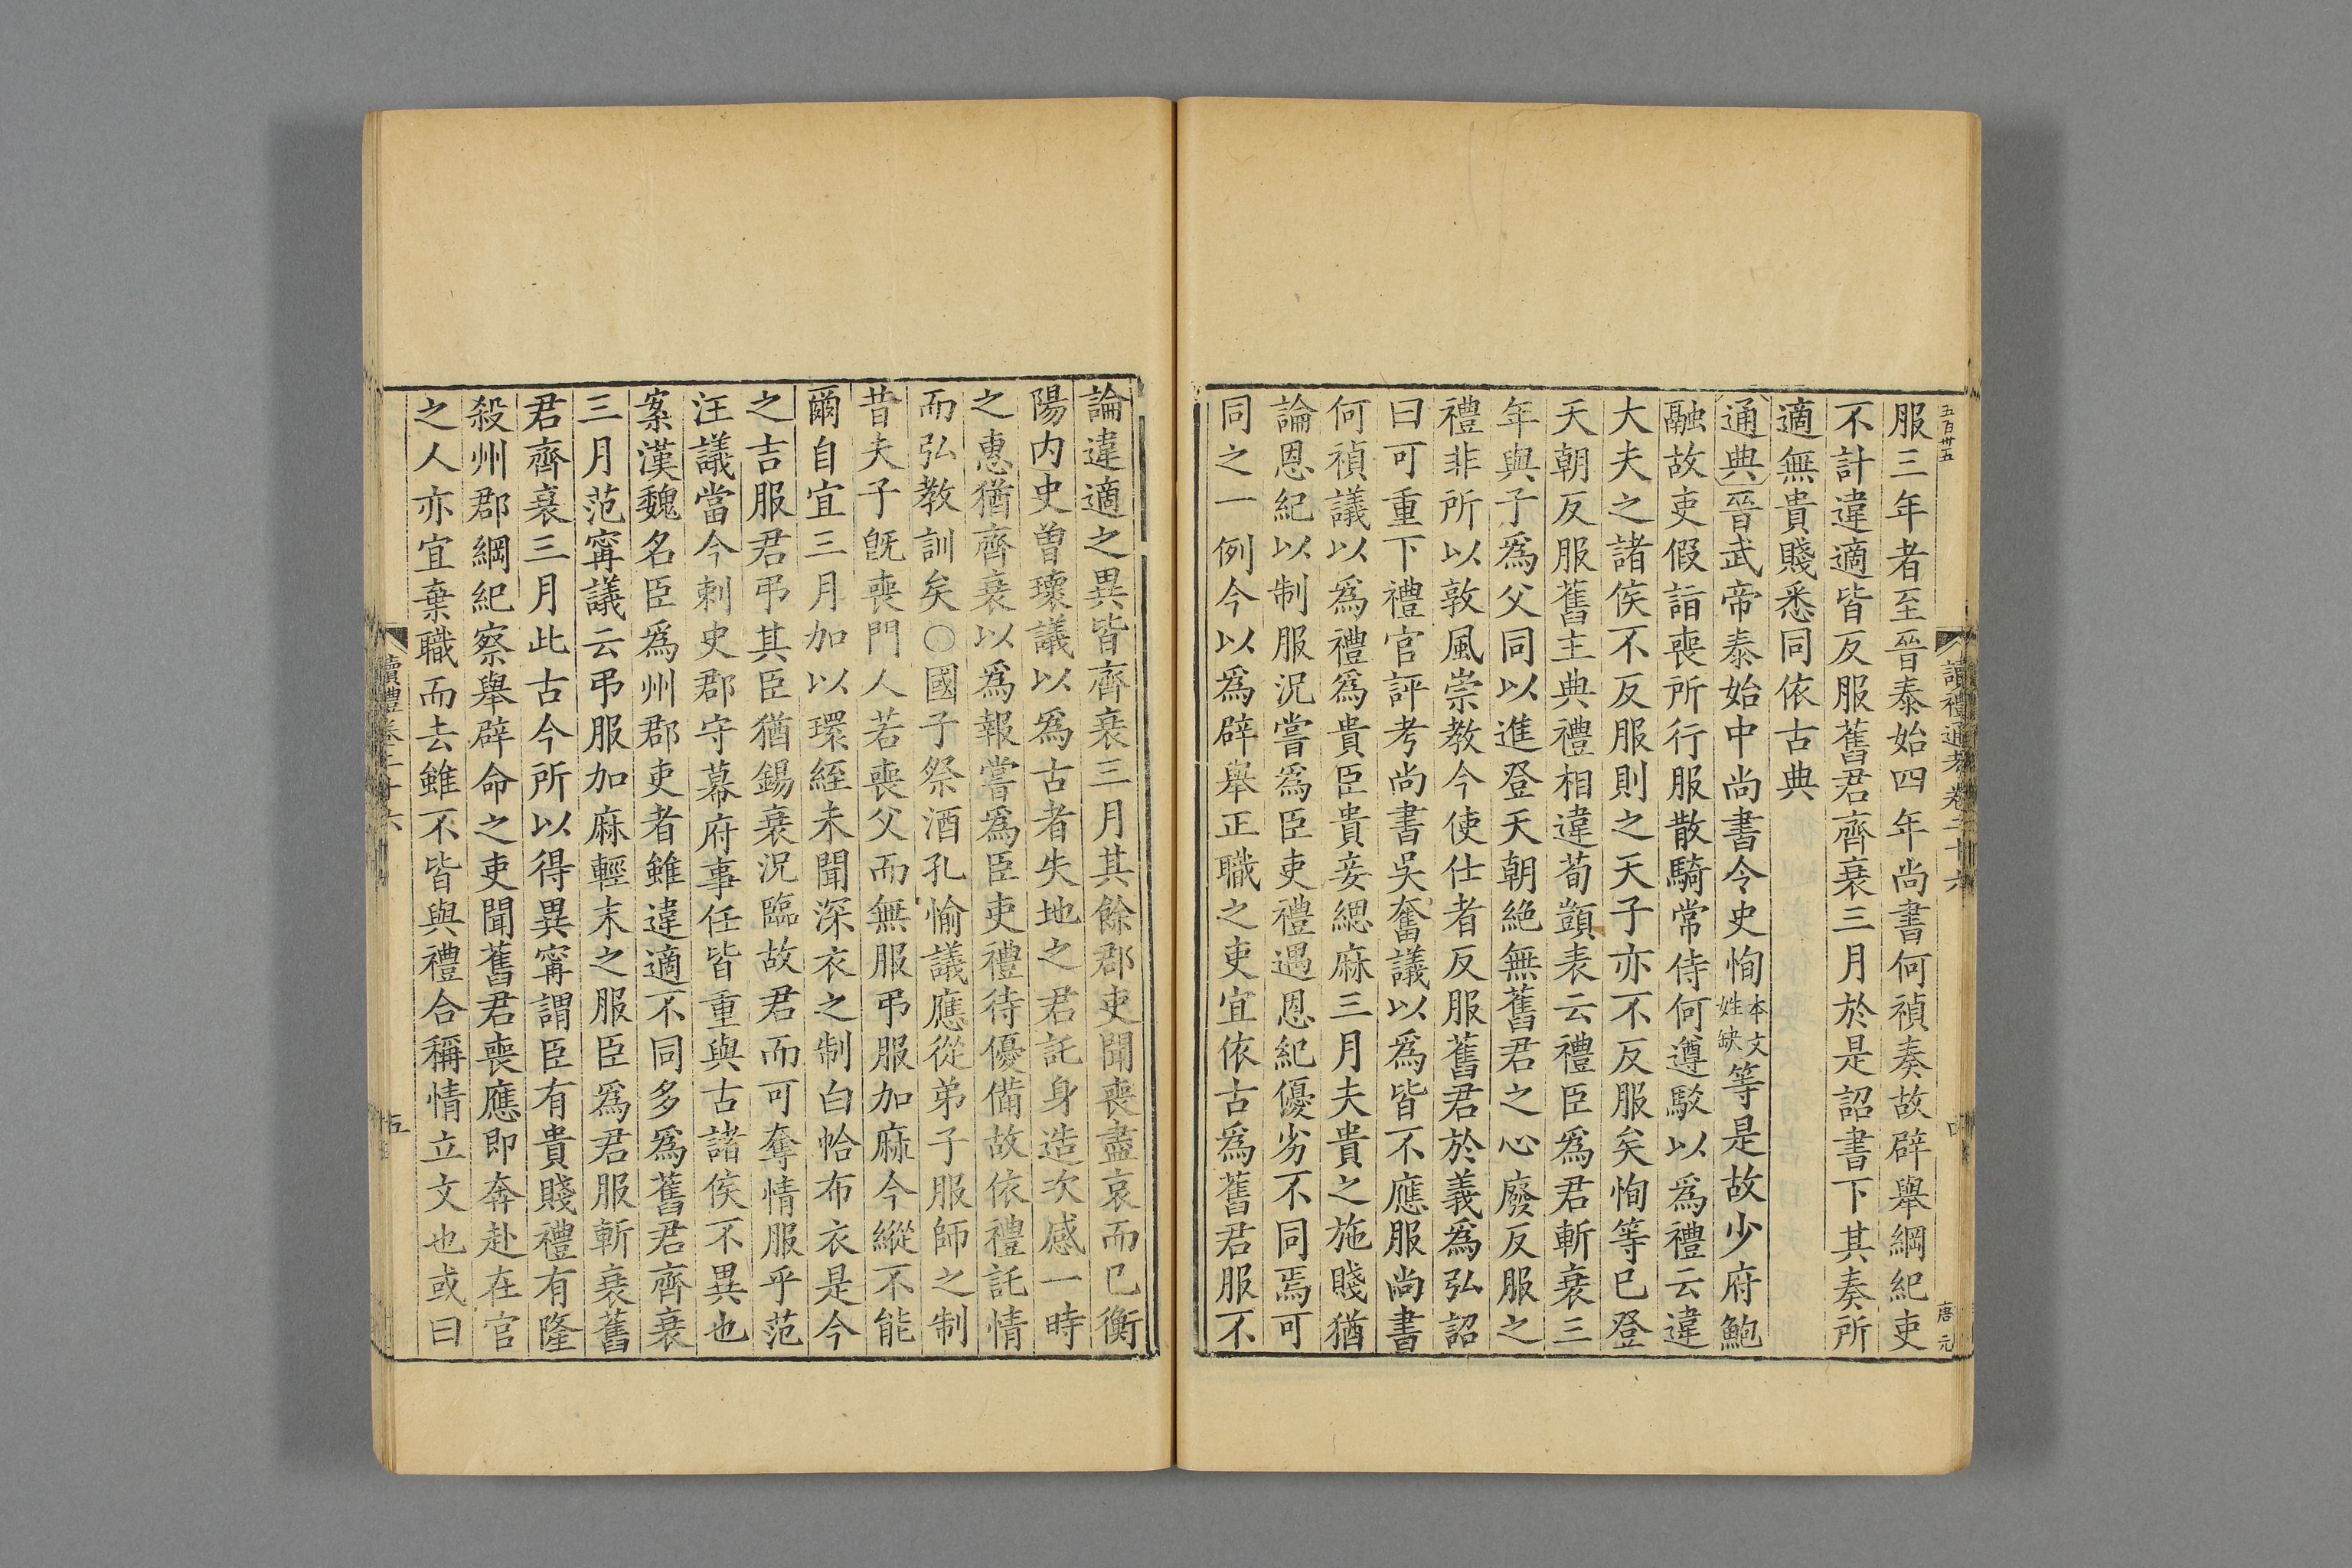 五百卅五
讀禮通考卷二十六
唐元
服三年者至晉泰始四年尚書何禎奏故辟舉綱紀吏
不計違適皆反服舊君齊衰三月於是詔書下其奏所
適無貴賤悉同依古典
通典晉武帝泰始中尚書令史恂本文姓缺等是故少府鮑
融故吏假詣喪所行服散騎常侍何遵駁以爲禮云違
大夫之諸侯不反服則之天子亦不反服矣恂等已登
天朝反服舊主典禮相違荀顗表云禮臣爲君斬衰三
年與子爲父同以進登天朝絶無舊君之心廢反服之
禮非所以敦風崇教今使仕者反服舊君於義爲弘詔
曰可重下禮官評考尚書吳奮議以爲皆不應服尚書
何禎議以爲禮爲貴臣貴妾緦麻三月夫貴之施賤猶
論恩紀以制服況嘗爲臣吏禮遇恩紀優劣不同焉可
同之一例今以爲辟舉正職之吏宜依古爲舊君服不
論違適之異皆齊衰三月其餘郡吏聞喪盡哀而已衡
陽内史曽瓌議以爲古者失地之君託身造次感一時
之惠猶齊衰以爲報嘗爲臣吏禮待優備故依禮託情
而弘教訓矣○國子祭酒孔愉議應從弟子服師之制
昔夫子既喪門人若喪父而無服弔服加麻今縱不能
爾自宜三月加以環絰未聞深衣之制白帢布衣是今
之吉服君弔其臣猶錫衰況臨故君而可奪情服乎范
汪議當今刺史郡守幕府事任皆重與古諸侯不異也
案漢魏名臣爲州郡吏者雖違適不同多爲舊君齊衰
三月范甯議云弔服加麻輕末之服臣爲君服斬衰舊
君齊衰三月此古今所以得異甯謂臣有貴賤禮有隆
殺州郡綱紀察舉辟命之吏聞舊君喪應即奔赴在官
之人亦宜棄職而去雖不皆與禮合稱情立文也或曰
讀禮卷二十六
五